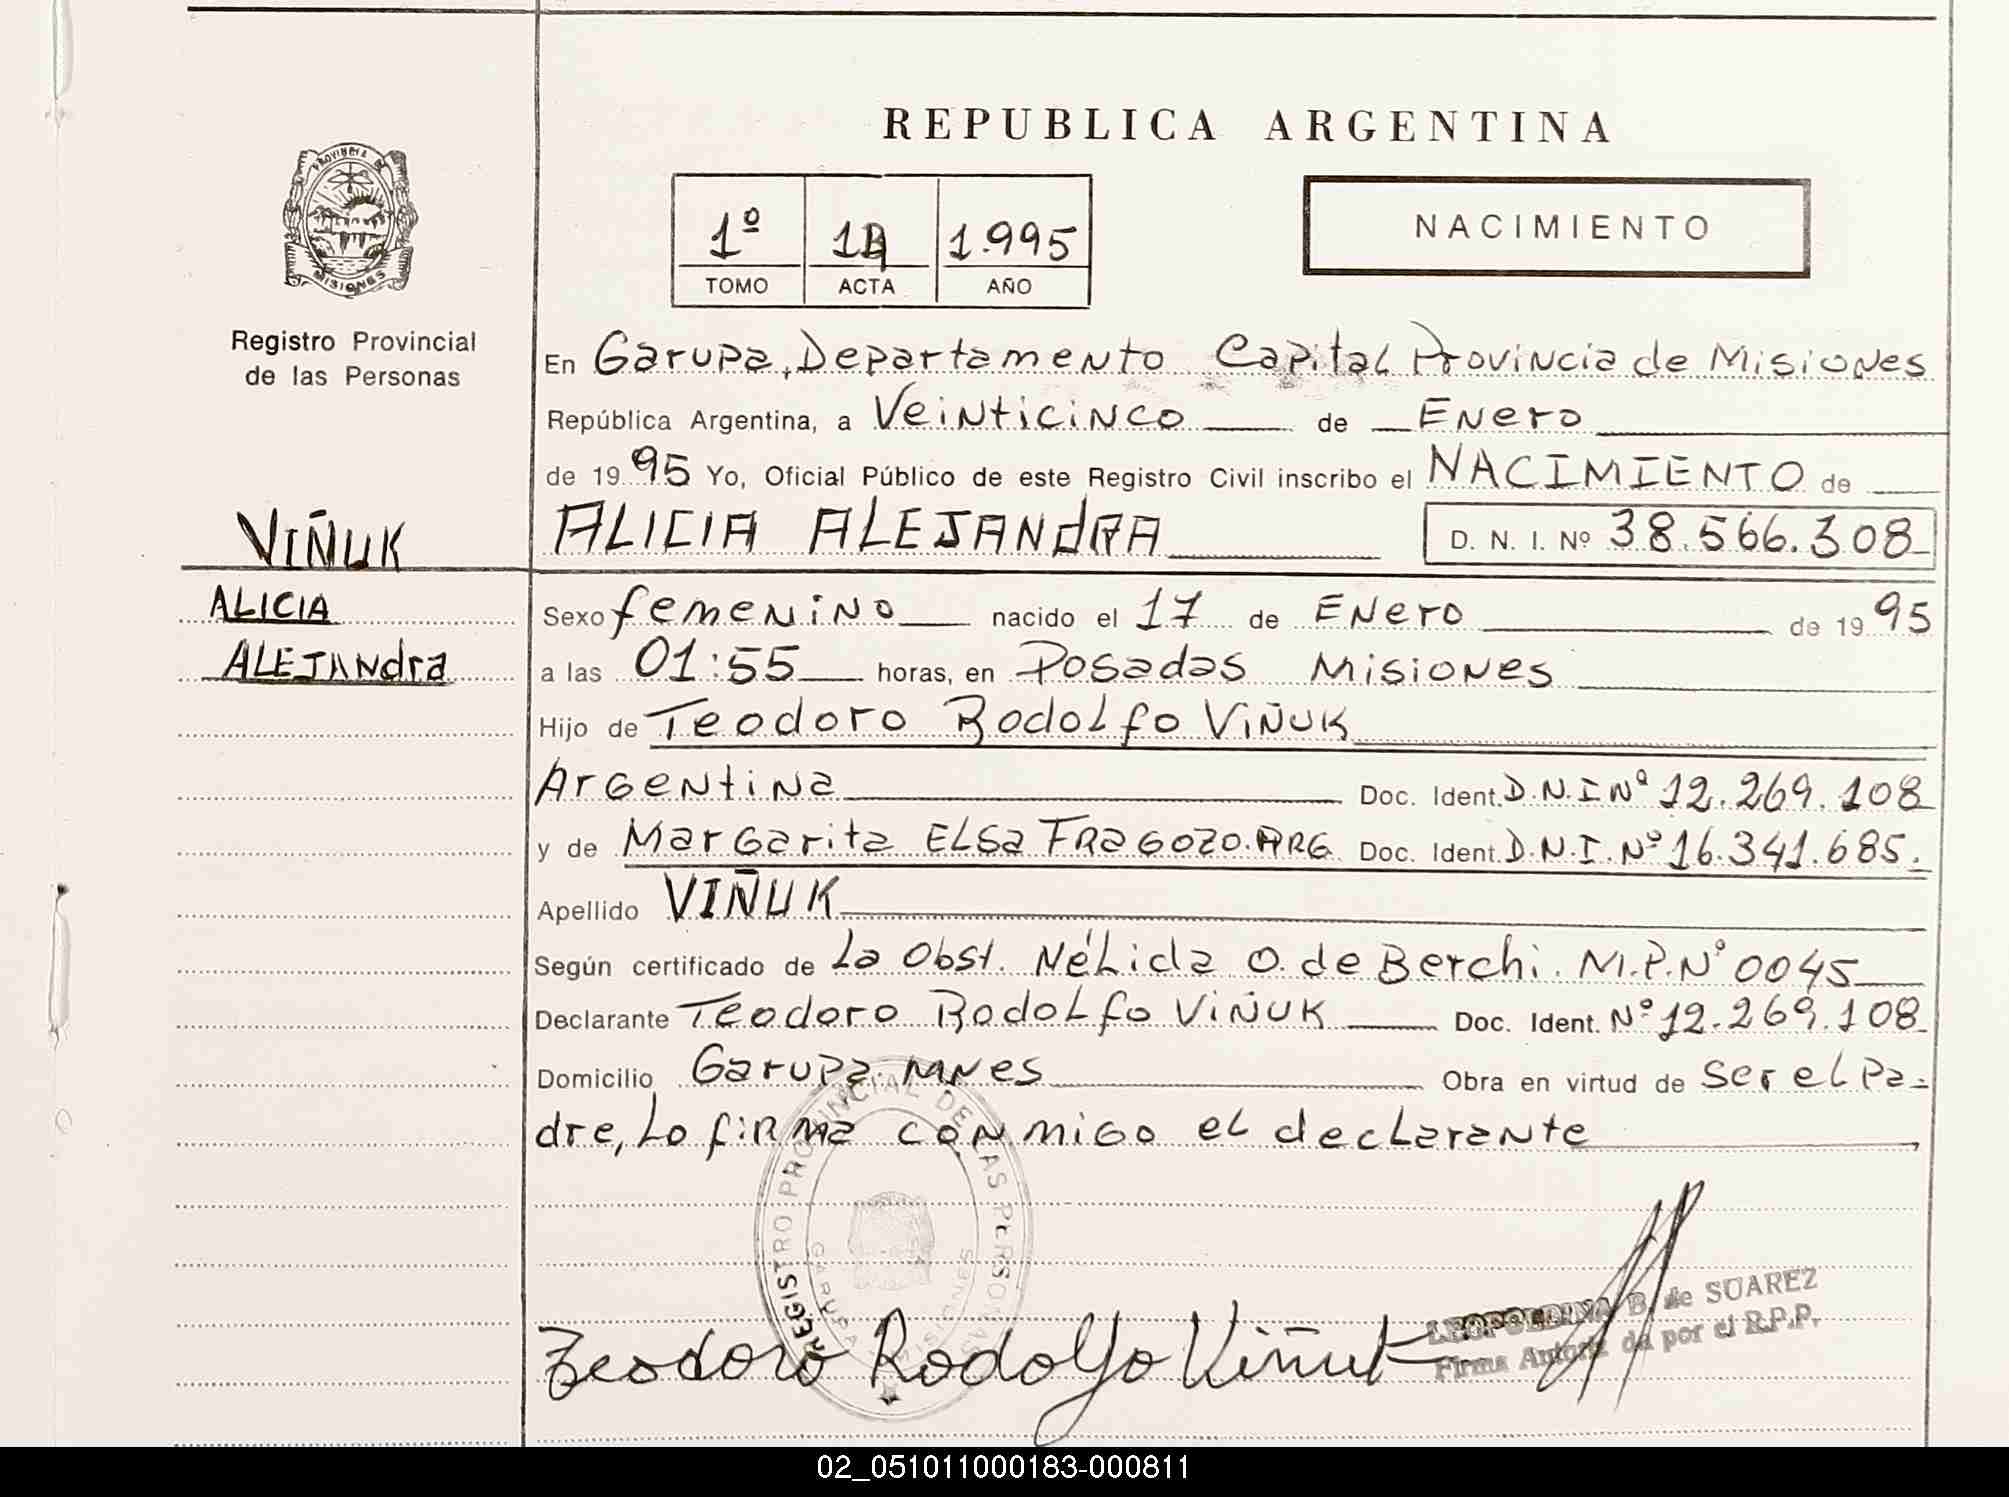 REPUBLICA ARGENTINA
PROVINCIA DE
MISIONES
1º
1.995
NACIMIENTO
TOMO
ACTA
AÑO
Registro Provincial
de las Personas
En Garupa, Departamento Capital Provincia de Misiones
República Argentina, a Veinticinco de Enero
de 1995 Yo, Oficial Público de este Registro Civil inscribo el NACIMIENTO de
VIÑUK
ALICIA ALEJANdRA
D. N. I. Nº 38.566.308
ALICIA
ALEJANdra
Sexo femenino nacido el 17 de Enero de 1995
a las 01:55 horas, en Posadas Misiones
Hijo de Teodoro Rodolfo Viñuk
Argentina Doc. Ident. D.N.I Nº 12.269.108
y de Margarita ELSa FRAGOZO. ARG. Doc. Ident. D.N.I. Nº 16.341.685.
Apellido VIÑUK
Según certificado de La Obst. Nélida O. de Berchi. M.P.Nº 0045
Declarante Teodoro Rodolfo Viñuk Doc. Ident. Nº 12.269.108
Domicilio Garupa. MNes Obra en virtud de ser el Pa-
dre, Lo firma conmigo el declarante
REGISTRO PROVINCIAL DE LAS PERSONAS
GARUPA
MISIONES
Teodoro Rodolfo Viñuk
LEOPOLDINA B. de SUAREZ
Firma Autorizada por el R.P.P.
02_051011000183-000811